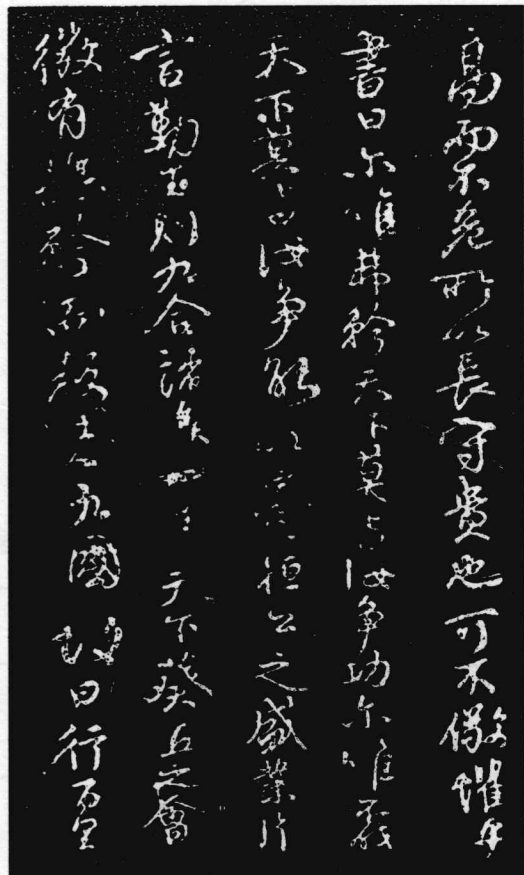 高而不危所以長守貴也可不儆懼乎
書曰尔唯弗矜天下莫与汝争功尔唯不伐
天下莫与汝争能以齊桓公之盛業片
言勤王則九合諸侯一匡天下葵丘之會
微有振矜而叛者九國故曰行百里